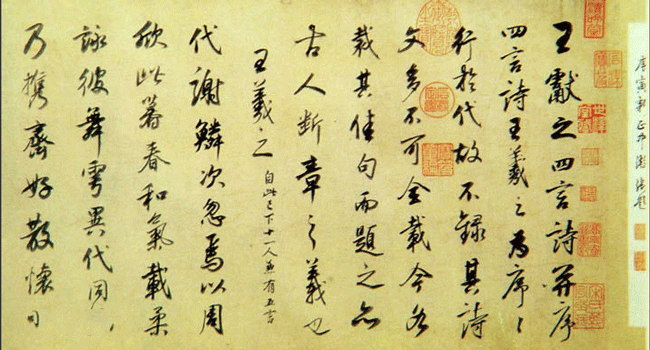 庚寅新正
王獻之四言詩并序
四言詩王羲之為序〻
行於代故不錄其詩
文多不可全載今各
裁其佳句而題之亦
古人斷章之義也
王羲之 自此已下十一人並有五言
代謝鱗次忽焉以周
欣此暮春和氣載柔
詠彼舞雩異代同
乃攜齊好散懷